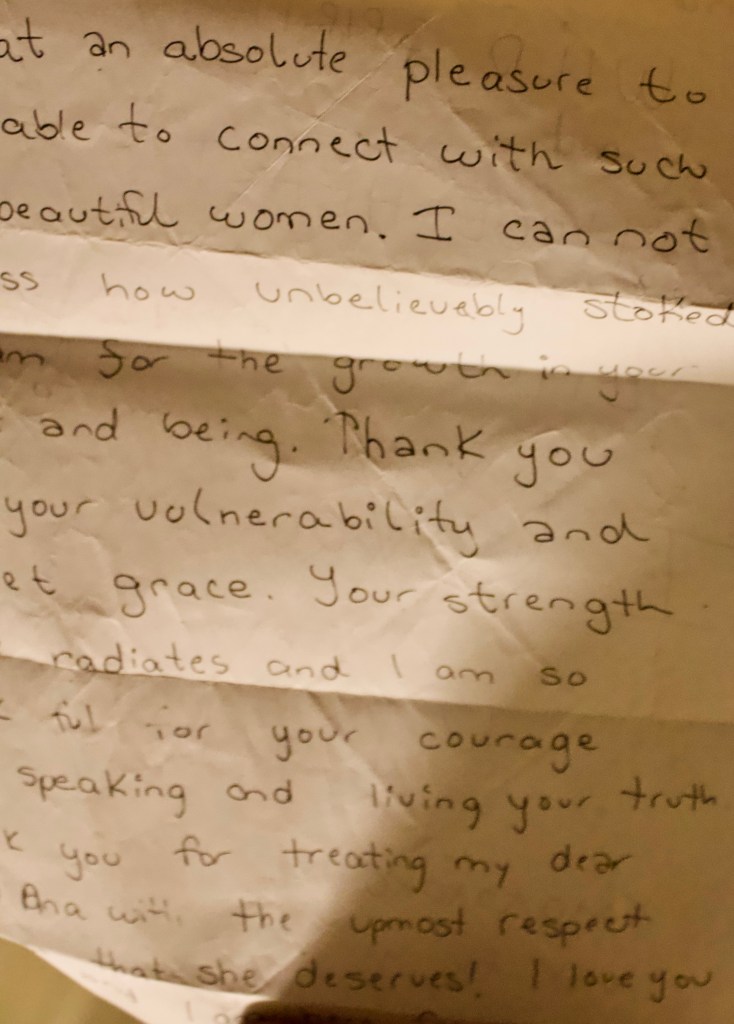 at an absolute pleasure to
able to connect with such
beautiful women. I can not
ss how unbelievebly stoked
m for the growth in your
and being. Thank you
your vulnerability and
et grace. Your strength
radiates and I am so
ful for your courage
speaking and living your truth
k you for treating my dear
Ana with the upmost respect
that she deserves! I love you